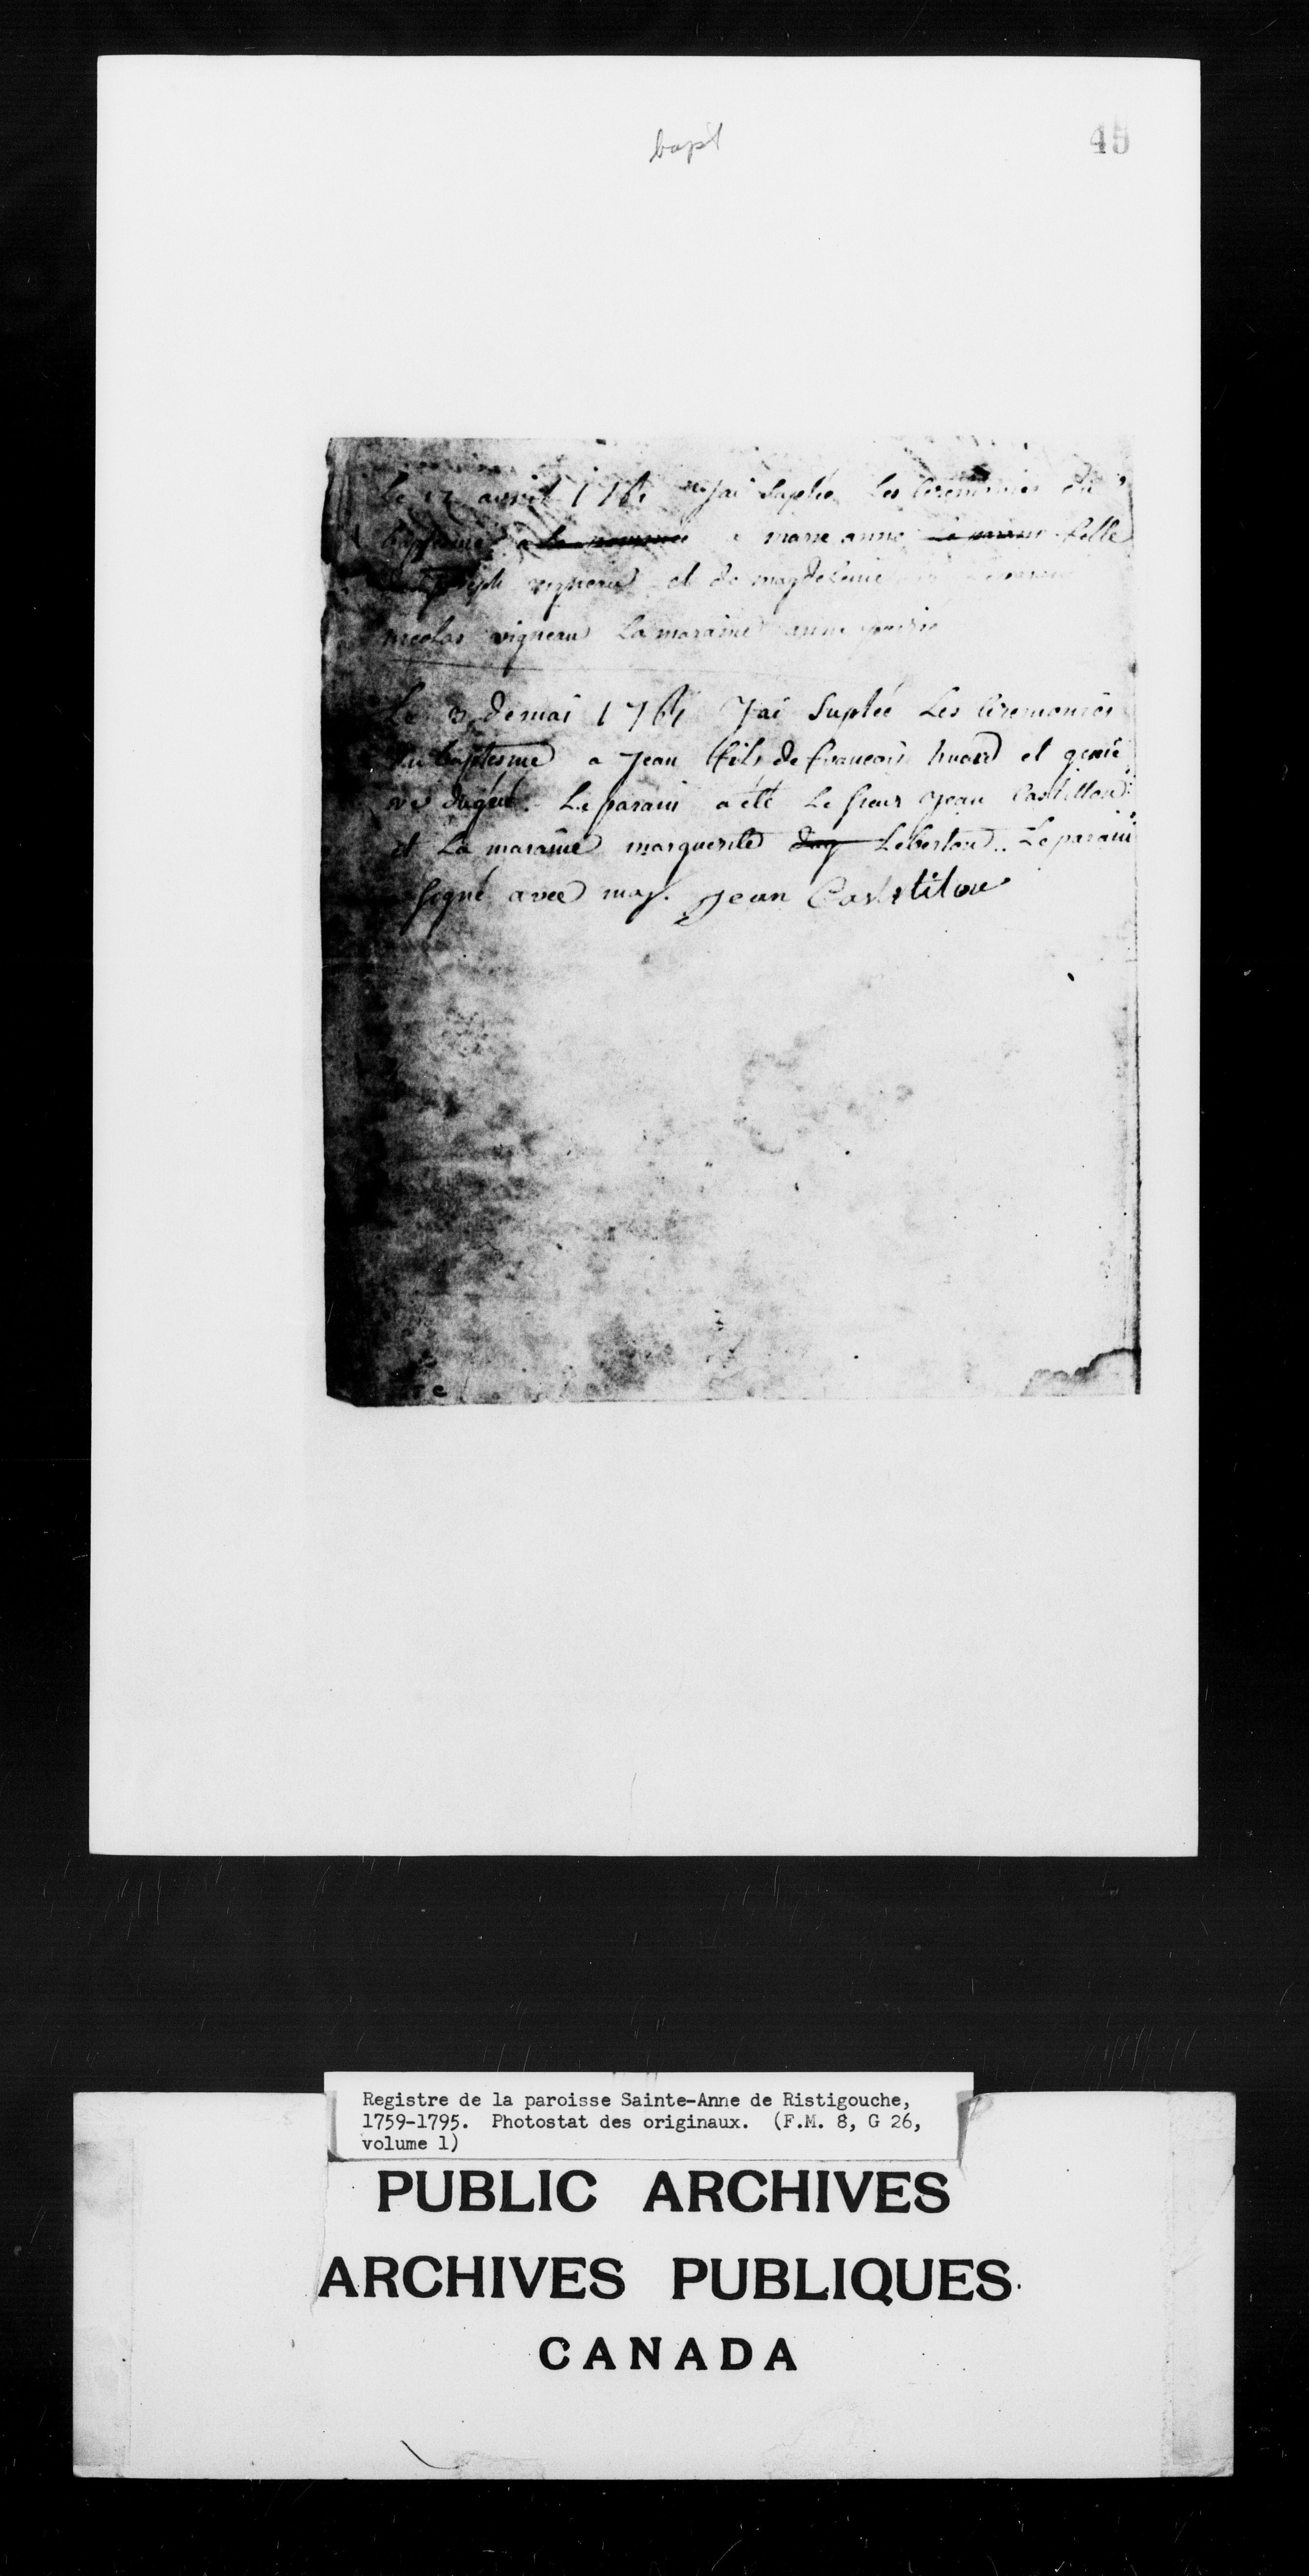 bapt
45
Le 12 avril 1761 J'ai Suplée Les Ceremonies du
a la nommée a marie anne fille
joseph vigneau et de magdeleine
nicolas vigneau La maraine anne poirié
Le 3 de mai 1761 J'ai Suplée Les Ceremonies
du baptesme a Jean fils de francois huard et genie
ve dugué. Le parain a été Le sieur Jean Castillon
et La maraine marguerite dug Leberton.. Le parain
signé avec moy. Jean Castitlou
Registre de la paroisse Sainte-Anne de Ristigouche,
1759-1795. Photostat des originaux. (F.M. 8, G 26,
volume 1)
PUBLIC ARCHIVES
ARCHIVES PUBLIQUES
CANADA